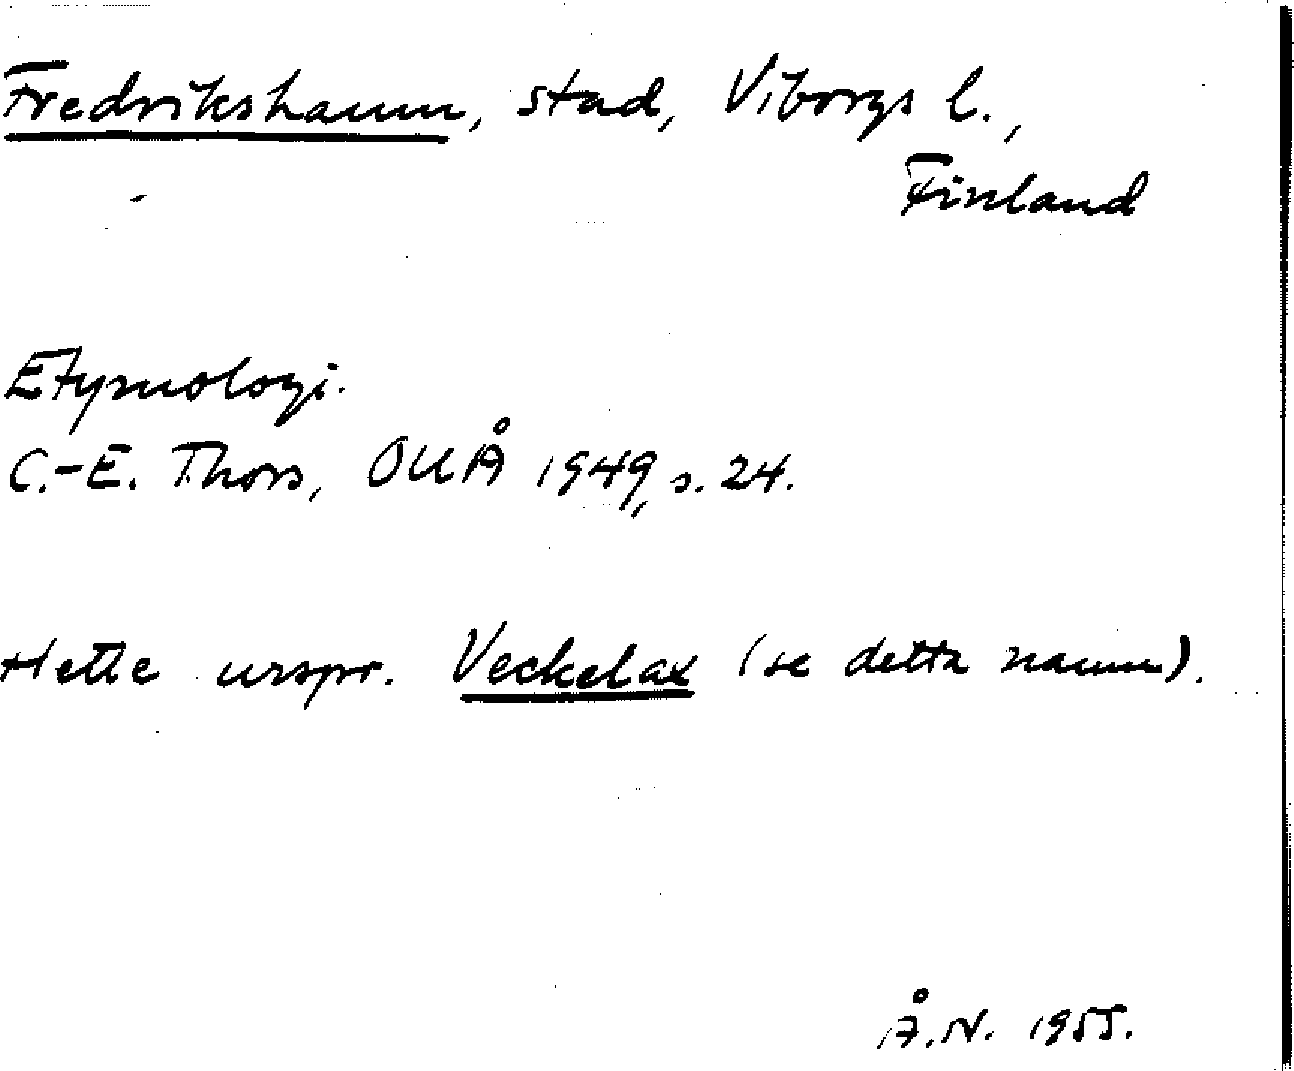 Fredrikshamn, stad, Viborgs l.,
Finland
Etymologi.
C.-E. Thors, OUÅ 1949, s. 24.
Hette urspr. Veckelax (se detta namn).
Å.N. 1955.